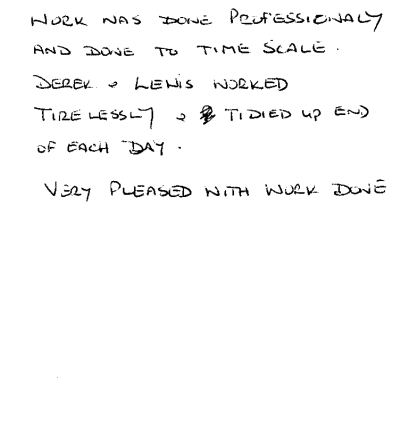 WORK WAS DONE PROFESSIONALY
AND DONE TO TIME SCALE.
DEREK & LEWIS WORKED
TIRELESSLY & TIDIED UP END
OF EACH DAY.
VERY PLEASED WITH WORK DONE